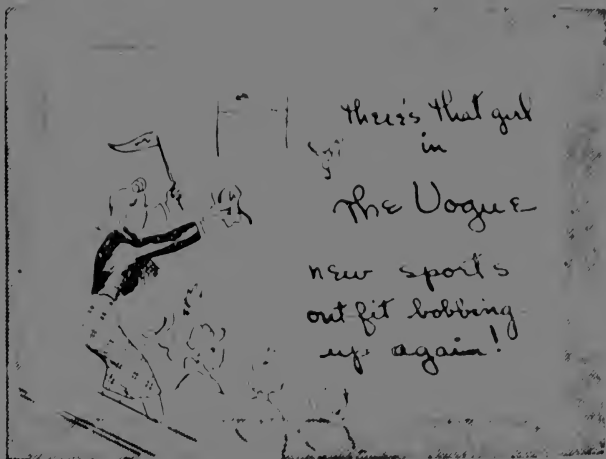 there's that girl
in
The Vogue
new sports
outfit bobbing
up again!